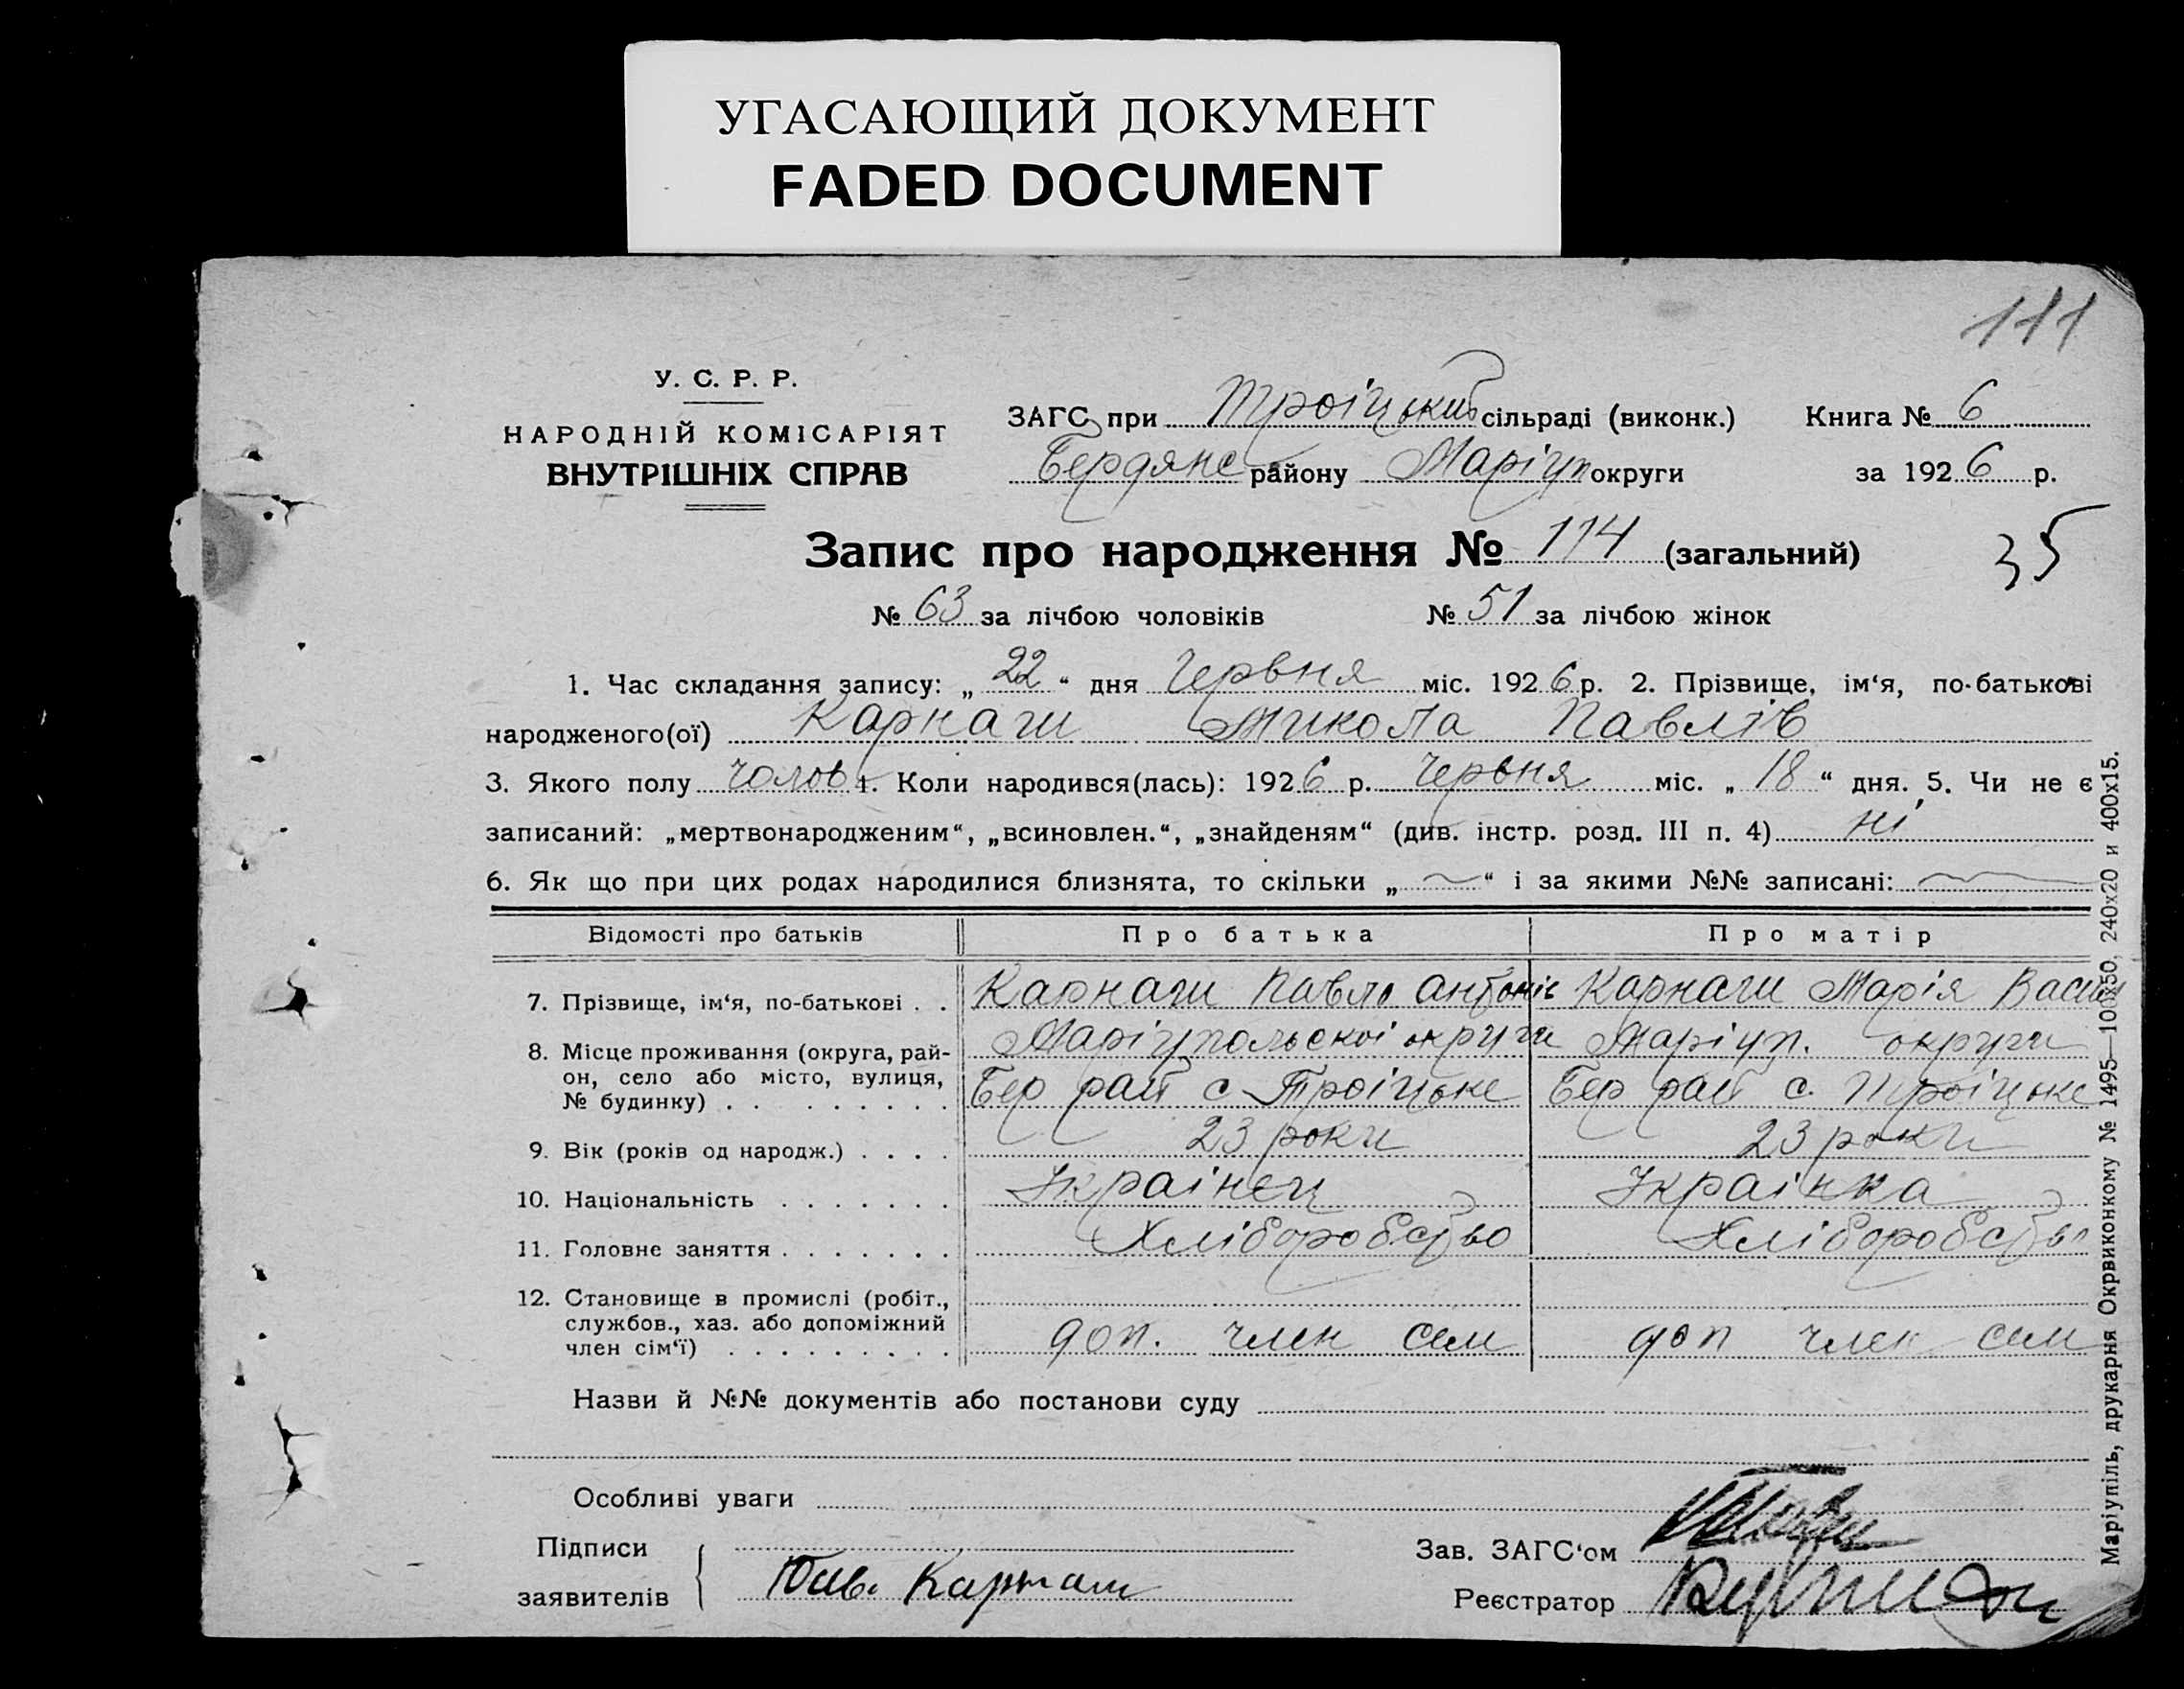 УГАСАЮЩИЙ ДОКУМЕНТ
FADED DOCUMENT
111
У. С. Р. Р.
НАРОДНІЙ КОМІСАРІЯТ
ВНУТРІШНІХ СПРАВ
ЗАГС при Троіцькій сільраді (виконк.) Книга № 6
Бердянс району Маріуп округи за 1926 р.
Запис про народження № 114 (загальний)
35
№ 63 за лічбою чоловіків № 51 за лічбою жінок
1. Час складання запису: „22“ дня Червня міс. 1926 р. 2. Прізвище, ім‘я, по-батькові
народженого(ої) Карнаги Микола Павлів
3. Якого полу чолов 4. Коли народився(лась): 1926 р. Червня міс. „18“ дня. 5. Чи не є
записаний: „мертвонародженим“, „всиновлен.“, „знайденям“ (див. інстр. розд. III п. 4) ні
6. Як що при цих родах народилися близнята, то скільки „ “ і за якими №№ записані:
Відомості про батьків Про батька Про матір
7. Прізвище, ім‘я, по-батькові . . Карнаги Павло Антонів Карнаги Марія Васил
8. Місце проживання (округа, рай- Маріупольскоі округи Маріуп. округи
он, село або місто, вулиця,
№ будинку) . . . . . . . . Бер рай с Троіцьке Бер рай с. Троіцьке
9. Вік (років од народж.) . . . . 23 роки 23 роки
10. Національність . . . . . . . Украінец Украінка
11. Головне заняття . . . . . . . Хліборобство Хліборобство
12. Становище в промислі (робіт.,
службов., хаз. або допоміжний
член сім‘ї) . . . . . . . . . доп. член сем доп член сем
Назви й №№ документів або постанови суду
Особливі уваги
Підписи
заявителів Карнаги
Зав. ЗАГС‘ом
Реєстратор
Маріупіль, друкарня Окрвиконкому № 1495—100х50, 240х20 и 400х15.